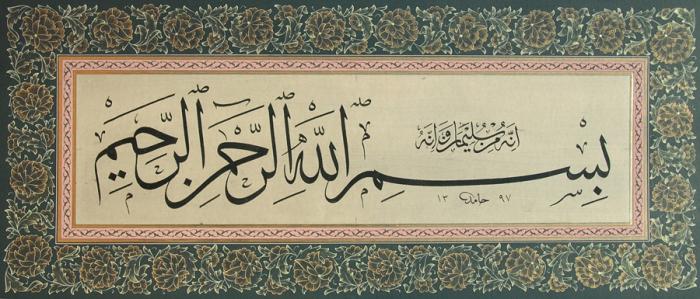 اِنَّهُ مِنْ سُلَيْمٰنَ وَاِنَّهُ
بِسْمِ اللّٰهِ الرَّحْمٰنِ الرَّحِيمِ
٩٧ حامد ١٣